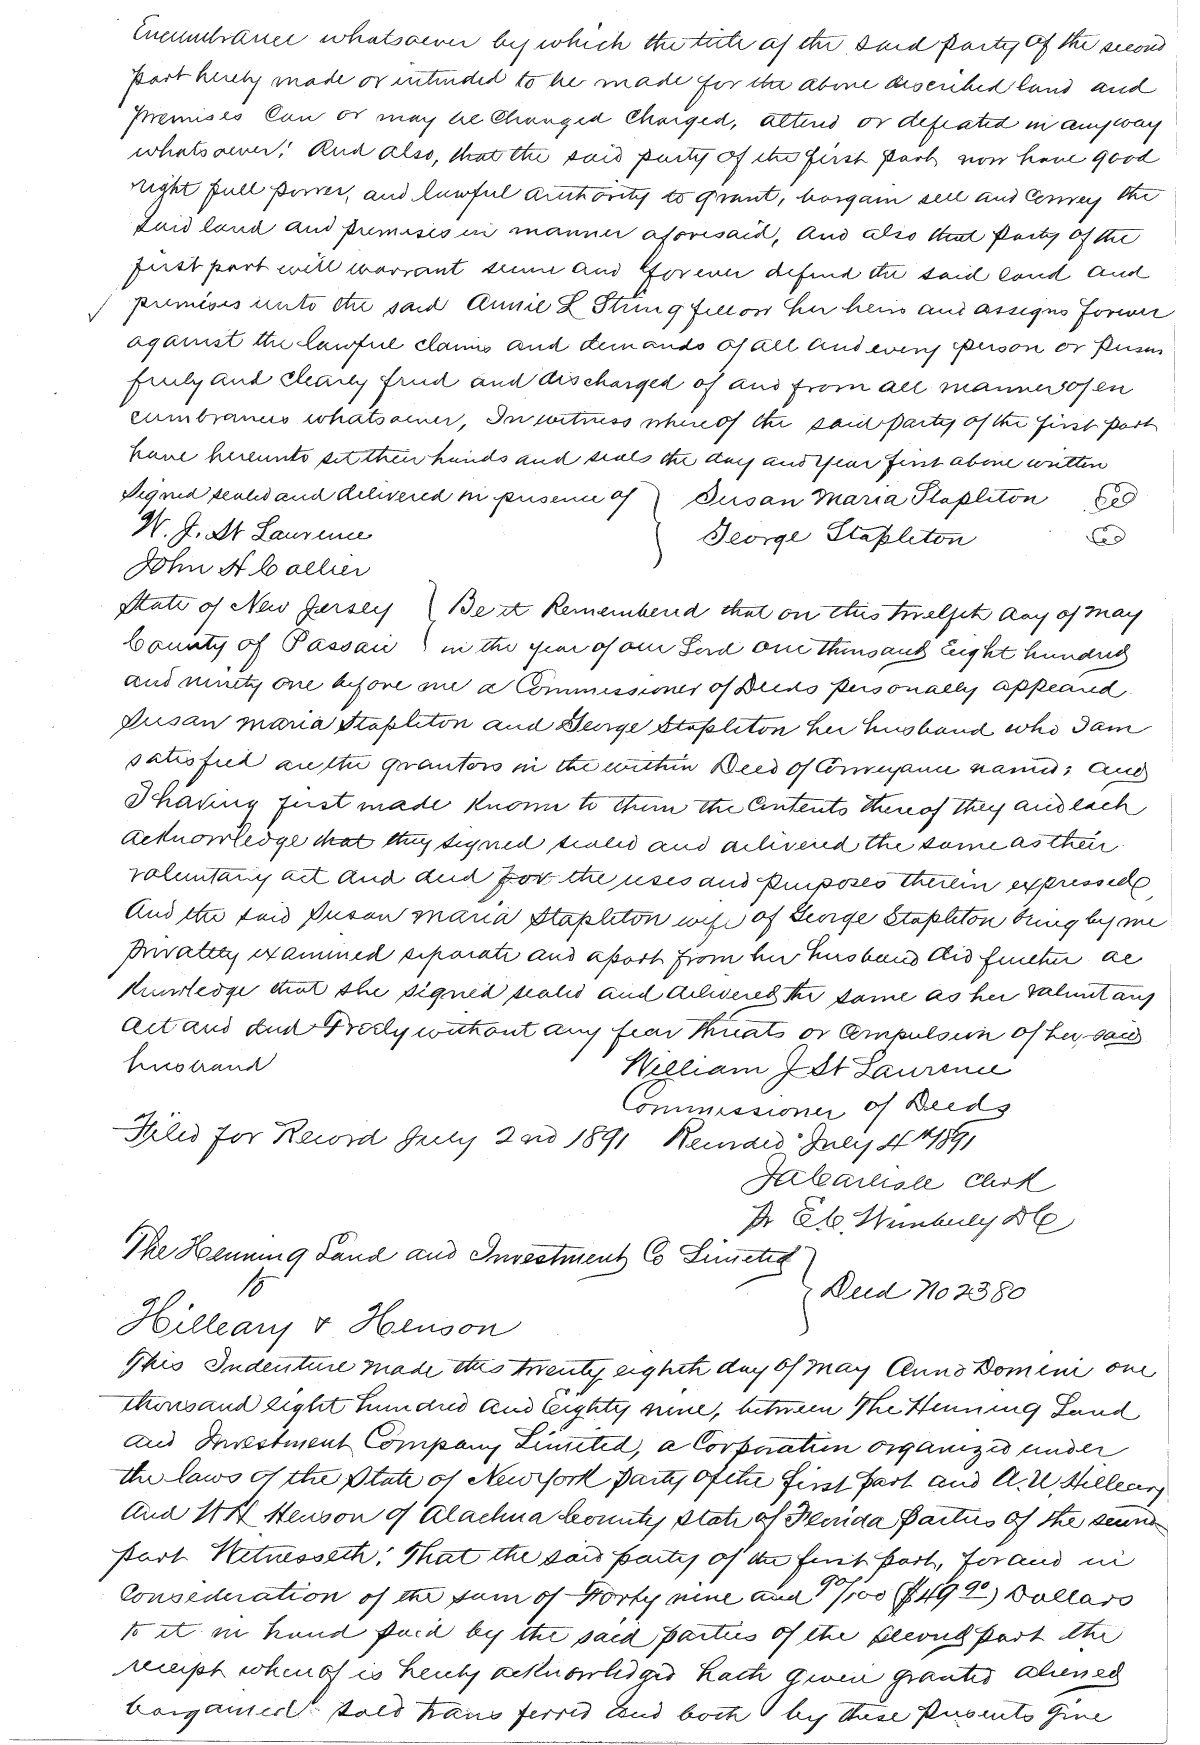 Encumbrance whatsoever by which the title of the said party of the second
part hereby made or intended to be made for the above described land and
premises Can or may be Changed Charged, altered or defeated in anyway
whatsoever: And also, that the said party of the first part now have good
right full power, and lawful authority to grant, bargain sell and Convey the
said land and premises in manner aforesaid, and also that party of the
first part will warrant secure and forever defend the said land and
premises unto the said Annie L Stringfellow her heirs and assigns forever
against the lawful claims and demands of all and every person or persons
freely and clearly freed and discharged of and from all manner of en
cumbrances whatsoever, In witness where of the said party of the first part
have hereunto set their hands and seals the day and year first above written
Signed sealed and delivered in presence of } Susan Maria Stapleton
W. J. St Laurence } George Stapleton
John H Collier
State of New Jersey } Be it Remembered that on this twelfth day of May
County of Passaic } in the year of our Lord one thousand Eight hundred
and ninety one before me a Commissioner of Deeds personally appeared
Susan Maria Stapleton and George Stapleton her husband who I am
satisfied are the grantors in the within Deed of Conveyance named; and
I having first made Known to them the Contents thereof they and each
acknowledge that they signed sealed and delivered the same as their
voluntary act and deed for the uses and purposes therein expressed,
And the said Susan Maria Stapleton wife of George Stapleton being by me
privately examined separate and apart from her husband did further ac
knowledge that she signed sealed and delivered the same as her voluntary
act and deed Freely without any fear threats or Compulsion of her said
husband William J St Laurence
Commissioner of Deeds
Filed for Record July 2nd 1891 Recorded July 4th 1891
J A Carlisle Clerk
Pr E C. Wimberly D C
The Henning Land and Investment Co Limited }
to } Deed No 2380
Hilleary & Henson
This Indenture made this twenty eighth day of May Anno Domini one
thousand eight hundred and Eighty nine, between The Henning Land
and Investment Company Limited, a Corporation organized under
the laws of the State of New York party of the first part and A. U. Hilleary
and W H Henson of Alachua County State of Florida parties of the second
part Witnesseth: That the said party of the first part, for and in
Consideration of the sum of Forty nine and 90/100 ($49 90) Dollars
to it in hand paid by the said parties of the second part the
receipt whereof is hereby acknowledged hath given granted aliened
bargained sold transferred and doth by these presents give